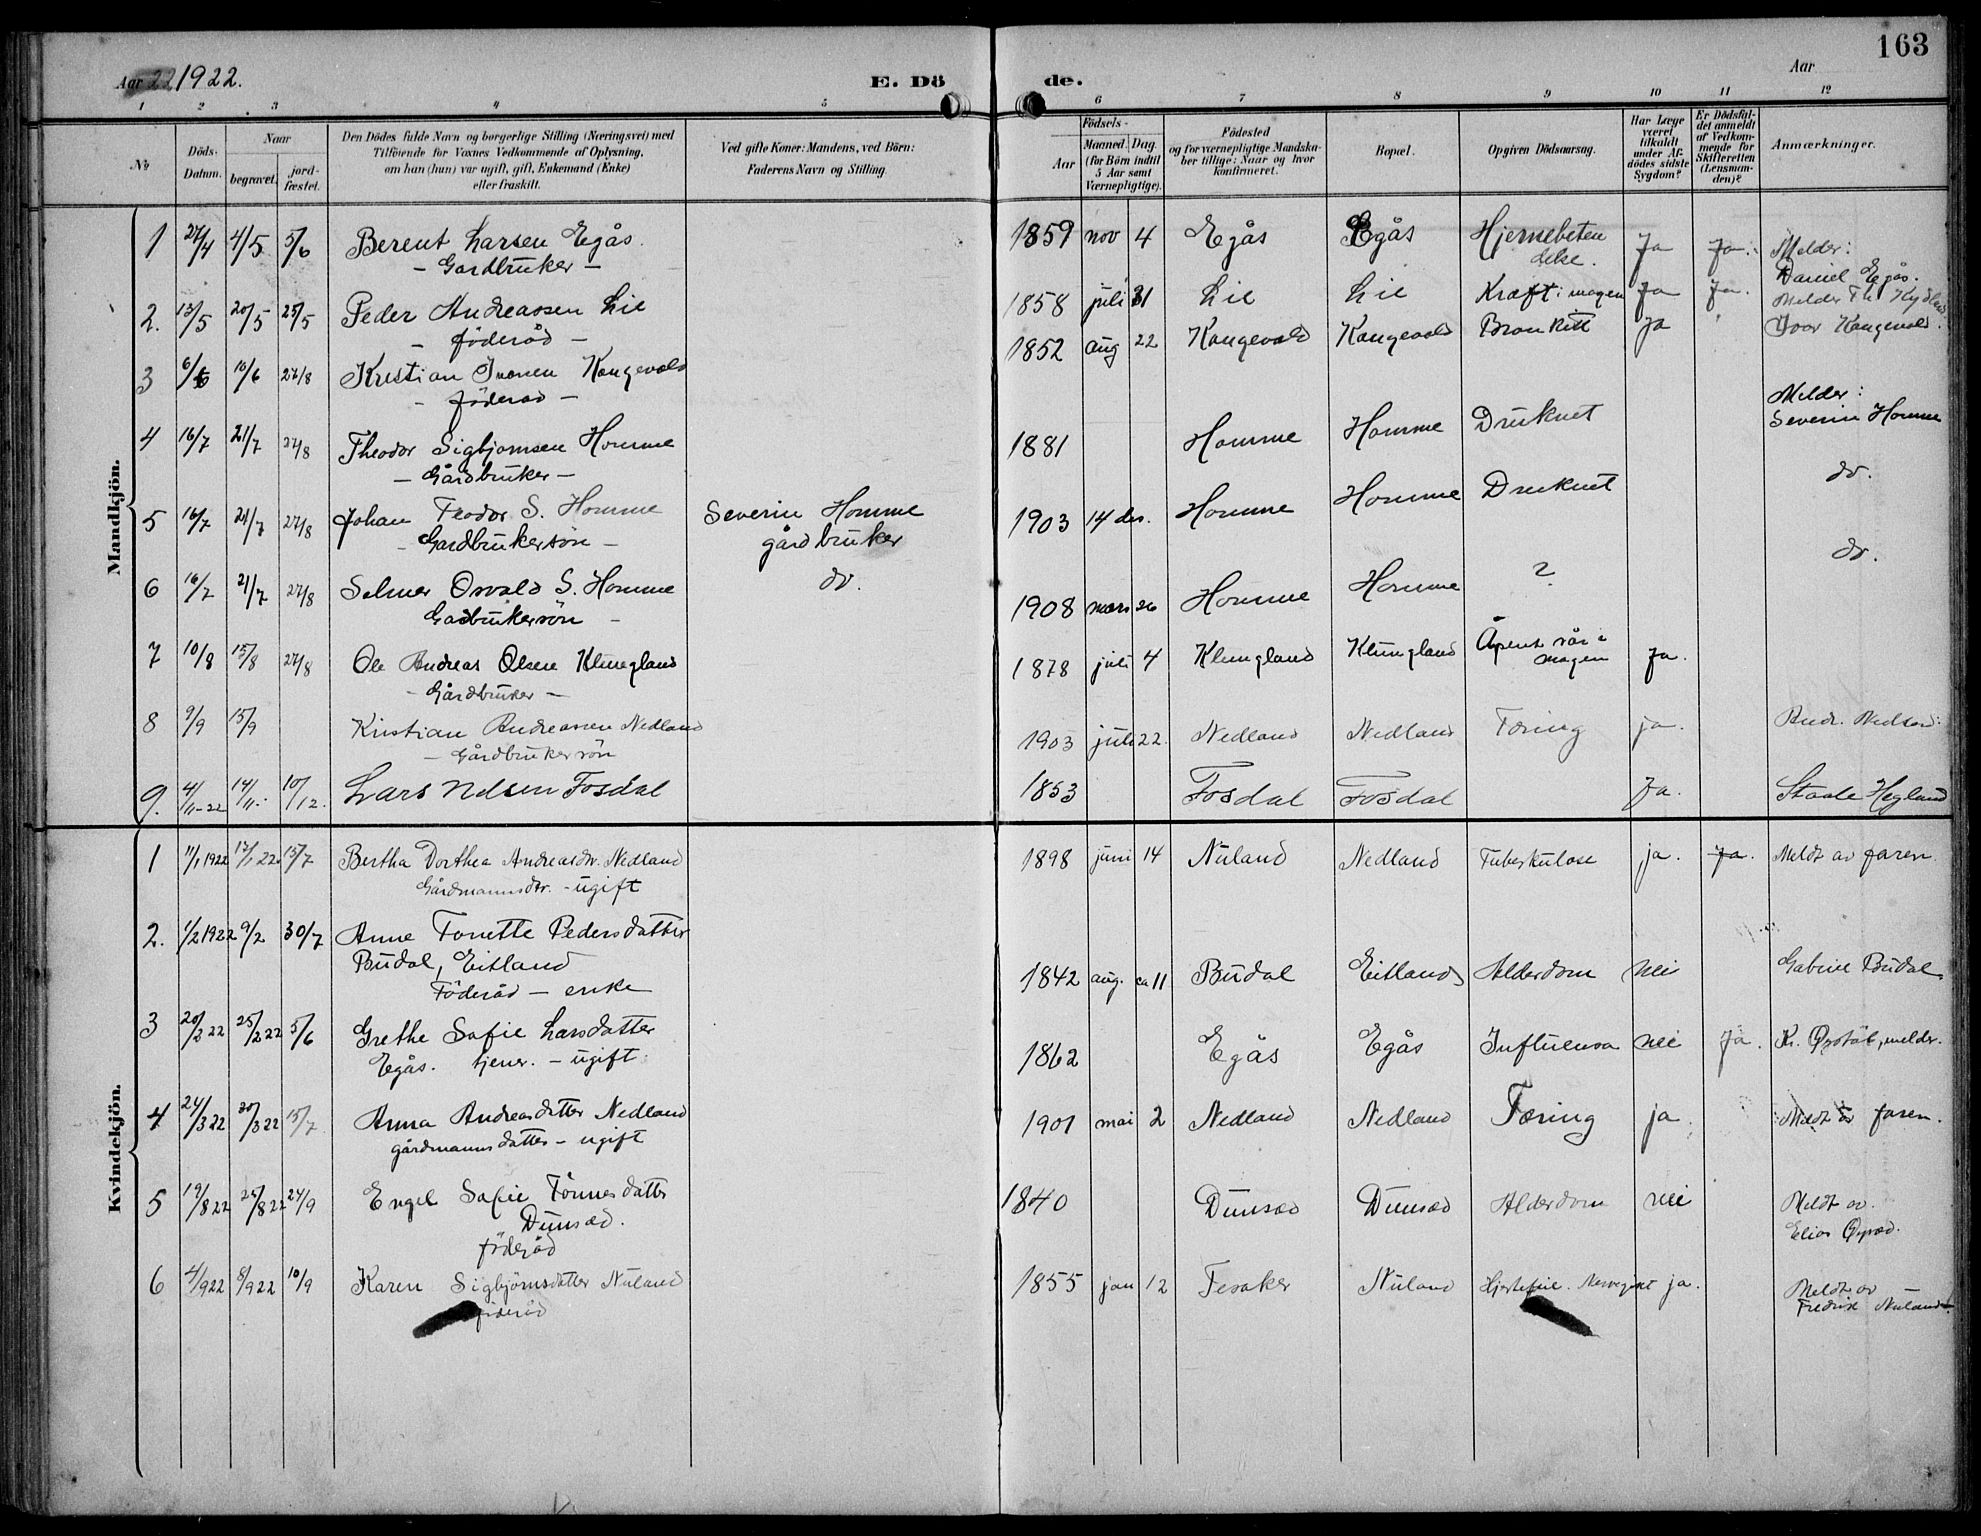 Aar 1922.
E. Döde.
Aar
163
1 2 3 4 5 6 7 8 9 10 11 12
No
Döds-Datum.
Naar
begravet.
jord-fæstet.
Den Dödes fulde Navn og borgerlige Stilling (Næringsvei) med
Tilföiende for Voxnes Vedkommende af Oplysning,
om han (hun) var ugift, gift, Enkemand (Enke)
eller fraskilt.
Ved gifte Koner: Mandens, ved Börn:
Faderens Navn og Stilling.
Födsels-
Aar
Maaned. Dag.
(for Börn indtil
5 Aar samt
Værnepligtige).
Födested
og for værnepligtige Mandska-
ber tillige: Naar og hvor
konfirmeret.
Bopæl.
Opgiven Dödsaarsag.
Har Læge
været
tilkaldt
under Af-
dödes sidste
Sygdom?
Er Dödsfal-
det anmeldt
af Vedkom-
mende for
Skifteretten
(Lensman-
den)?
Anmærkninger.
Mandkjön.
1 27/4 4/5 5/6 Berent Larsen Egås. 1859 nov 4 Egås Egås Hjernebeten Ja Ja. Melder:
- Gardbruker - delse. Daniel Egås.
2. 13/5 20/5 25/5 Peder Andreassen Lie 1858 juli 31 Lie Lie Kræft i magen Ja Ja. Melder
- föderåd -
3 6/6 10/6 27/8 Kristian Kongevold 1852 aug 22 Kongevold Kongevold Bronkitt Ja Ivar Kongevold.
- föderåd -
4 16/7 21/7 27/8 Theodor Sigbjornsen Homme 1881 Homme Homme Druknet Melder:
- Gårdbruker - Severin Homme
5 16/7 21/7 27/8 Johan Teodor S. Homme Severin Homme 1903 14 des. Homme Homme Druknet do.
- Gardbrukersön - gårdbruker
6 16/7 21/7 27/8 Selmer Osvald S. Homme do. 1908 mars 26 Homme Homme ? do.
Gardbrukersön -
7 10/8 15/8 27/8 Ole Andreas Olsen Klungland 1878 juli 4 Klungland Klungland Åpent sår i Ja.
- Gårdbruker - magen
8 9/9 15/9 Kristian Andreassen Nedland 1903 juli 22. Nedland Nedland Tæring ja. Andr. Nedland:
- Gårdbrukersön
9. 4/11-22 14/11. 10/12. Lars Nelsen Fosdal 1853 Fosdal Fosdal Ja. Staale Hegland
Kvindekjön.
1 11/1 1922 17/1 22 15/7 Bertha Dorthea Andreasdr. Nedland 1898 juni 14 Nuland Nedland Tuberkulose ja. Ja. Meldt av faren.
Gårdmannsdtr. - ugift
2. 1/2 1922 9/2 30/7 Anne Tonette Pedersdatter
Budal, Eitland 1842 aug. ca 11 Budal Eitland Alderdom Nei Gabriel Budal.
Föderåd - enke
3 20/2 22 25/2 22 5/6 Grethe Sofie Larsdatter 1862 Egås Egås Influensa nei Ja. melder.
Egås. tjener. - ugift.
4 24/3 22 30/3 22 15/7 Anna Andreasdatter Nedland 1901 mai 2 Nedland Nedland Tæring ja. Meldt av faren.
gårdmannsdatter - ugift
5 19/8 22 25/8 22 24/9 Engel Sofie Tönnesdatter 1840 Dunsæd Dunsæd Alderdom nei Meldt av
Dunsæd. Elias
föderåd
6 4/9 22 8/9 22 10/9 Karen Sigbjörnsdatter Nuland 1855 jan 12 Fesaker Nuland Hjertefeil. ja. Meldt av
föderåd Fredrik Nuland.